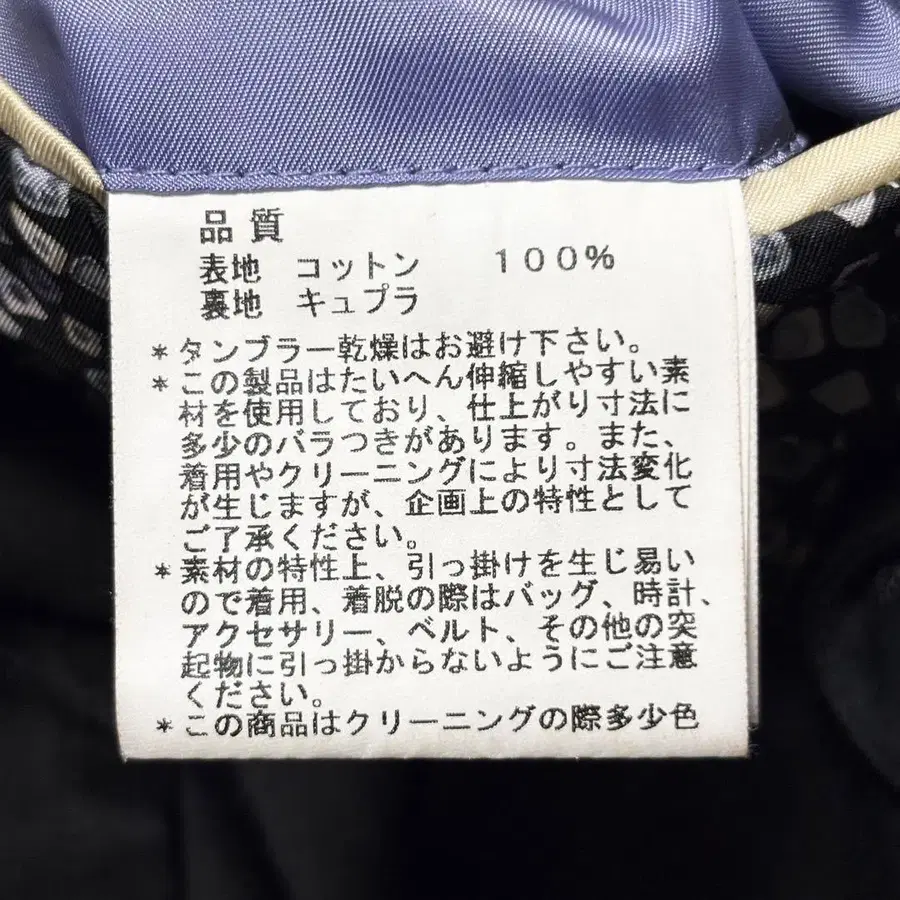 品質
表地 コットン 100%
裏地 キュプラ
*タンブラー乾燥はお避け下さい。
*この製品はたいへん伸縮しやすい素
材を使用しており、仕上がり寸法に
多少のバラつきがあります。また、
着用やクリーニングにより寸法変化
が生じますが、企画上の特性として
ご了承ください。
*素材の特性上、引っ掛けを生じ易い
ので着用、着脱の際はバッグ、時計、
アクセサリー、ベルト、その他の突
起物に引っ掛からないようにご注意
ください。
*この商品はクリーニングの際多少色